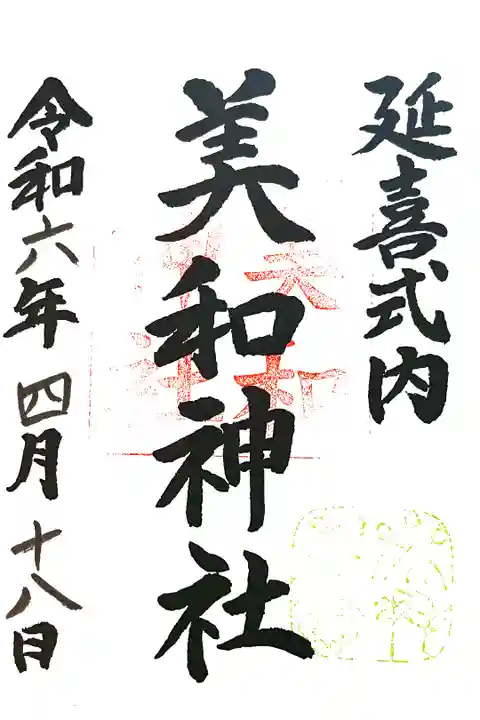 延喜式内
美和神社
令和六年四月十八日